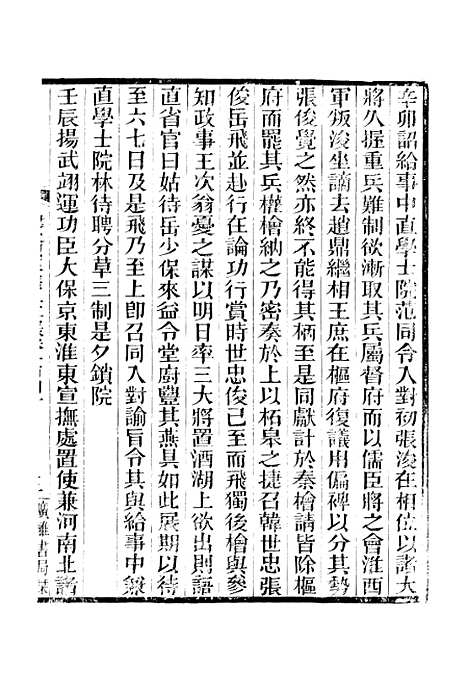 辛卯詔給事中直學士院范同令入對初張浚在相位以諸大
將久握重兵難制欲漸取其兵屬督府而以儒臣將之會淮西
軍叛浚坐謫去趙鼎繼相王庶在樞府復議用偏裨以分其勢
張俊覺之然亦終不能得其柄至是同獻計於秦檜請皆除樞
府而罷其兵權檜納之乃密奏於上以柘皋之捷召韓世忠張
俊岳飛並赴行在論功行賞時世忠俊已至而飛獨後檜與參
知政事王次翁憂之謀以明日率三大將置酒湖上欲出則語
直省官曰姑待岳少保來益令堂廚豐其燕具如此展期以待
至六七日及是飛乃至上卽召同入對諭旨令其與給事中兼
直學士院林待聘分草三制是夕鎖院
壬辰揚武翊運功臣大保京東淮東宣撫處置使兼河南北諸
廣雅書局栞